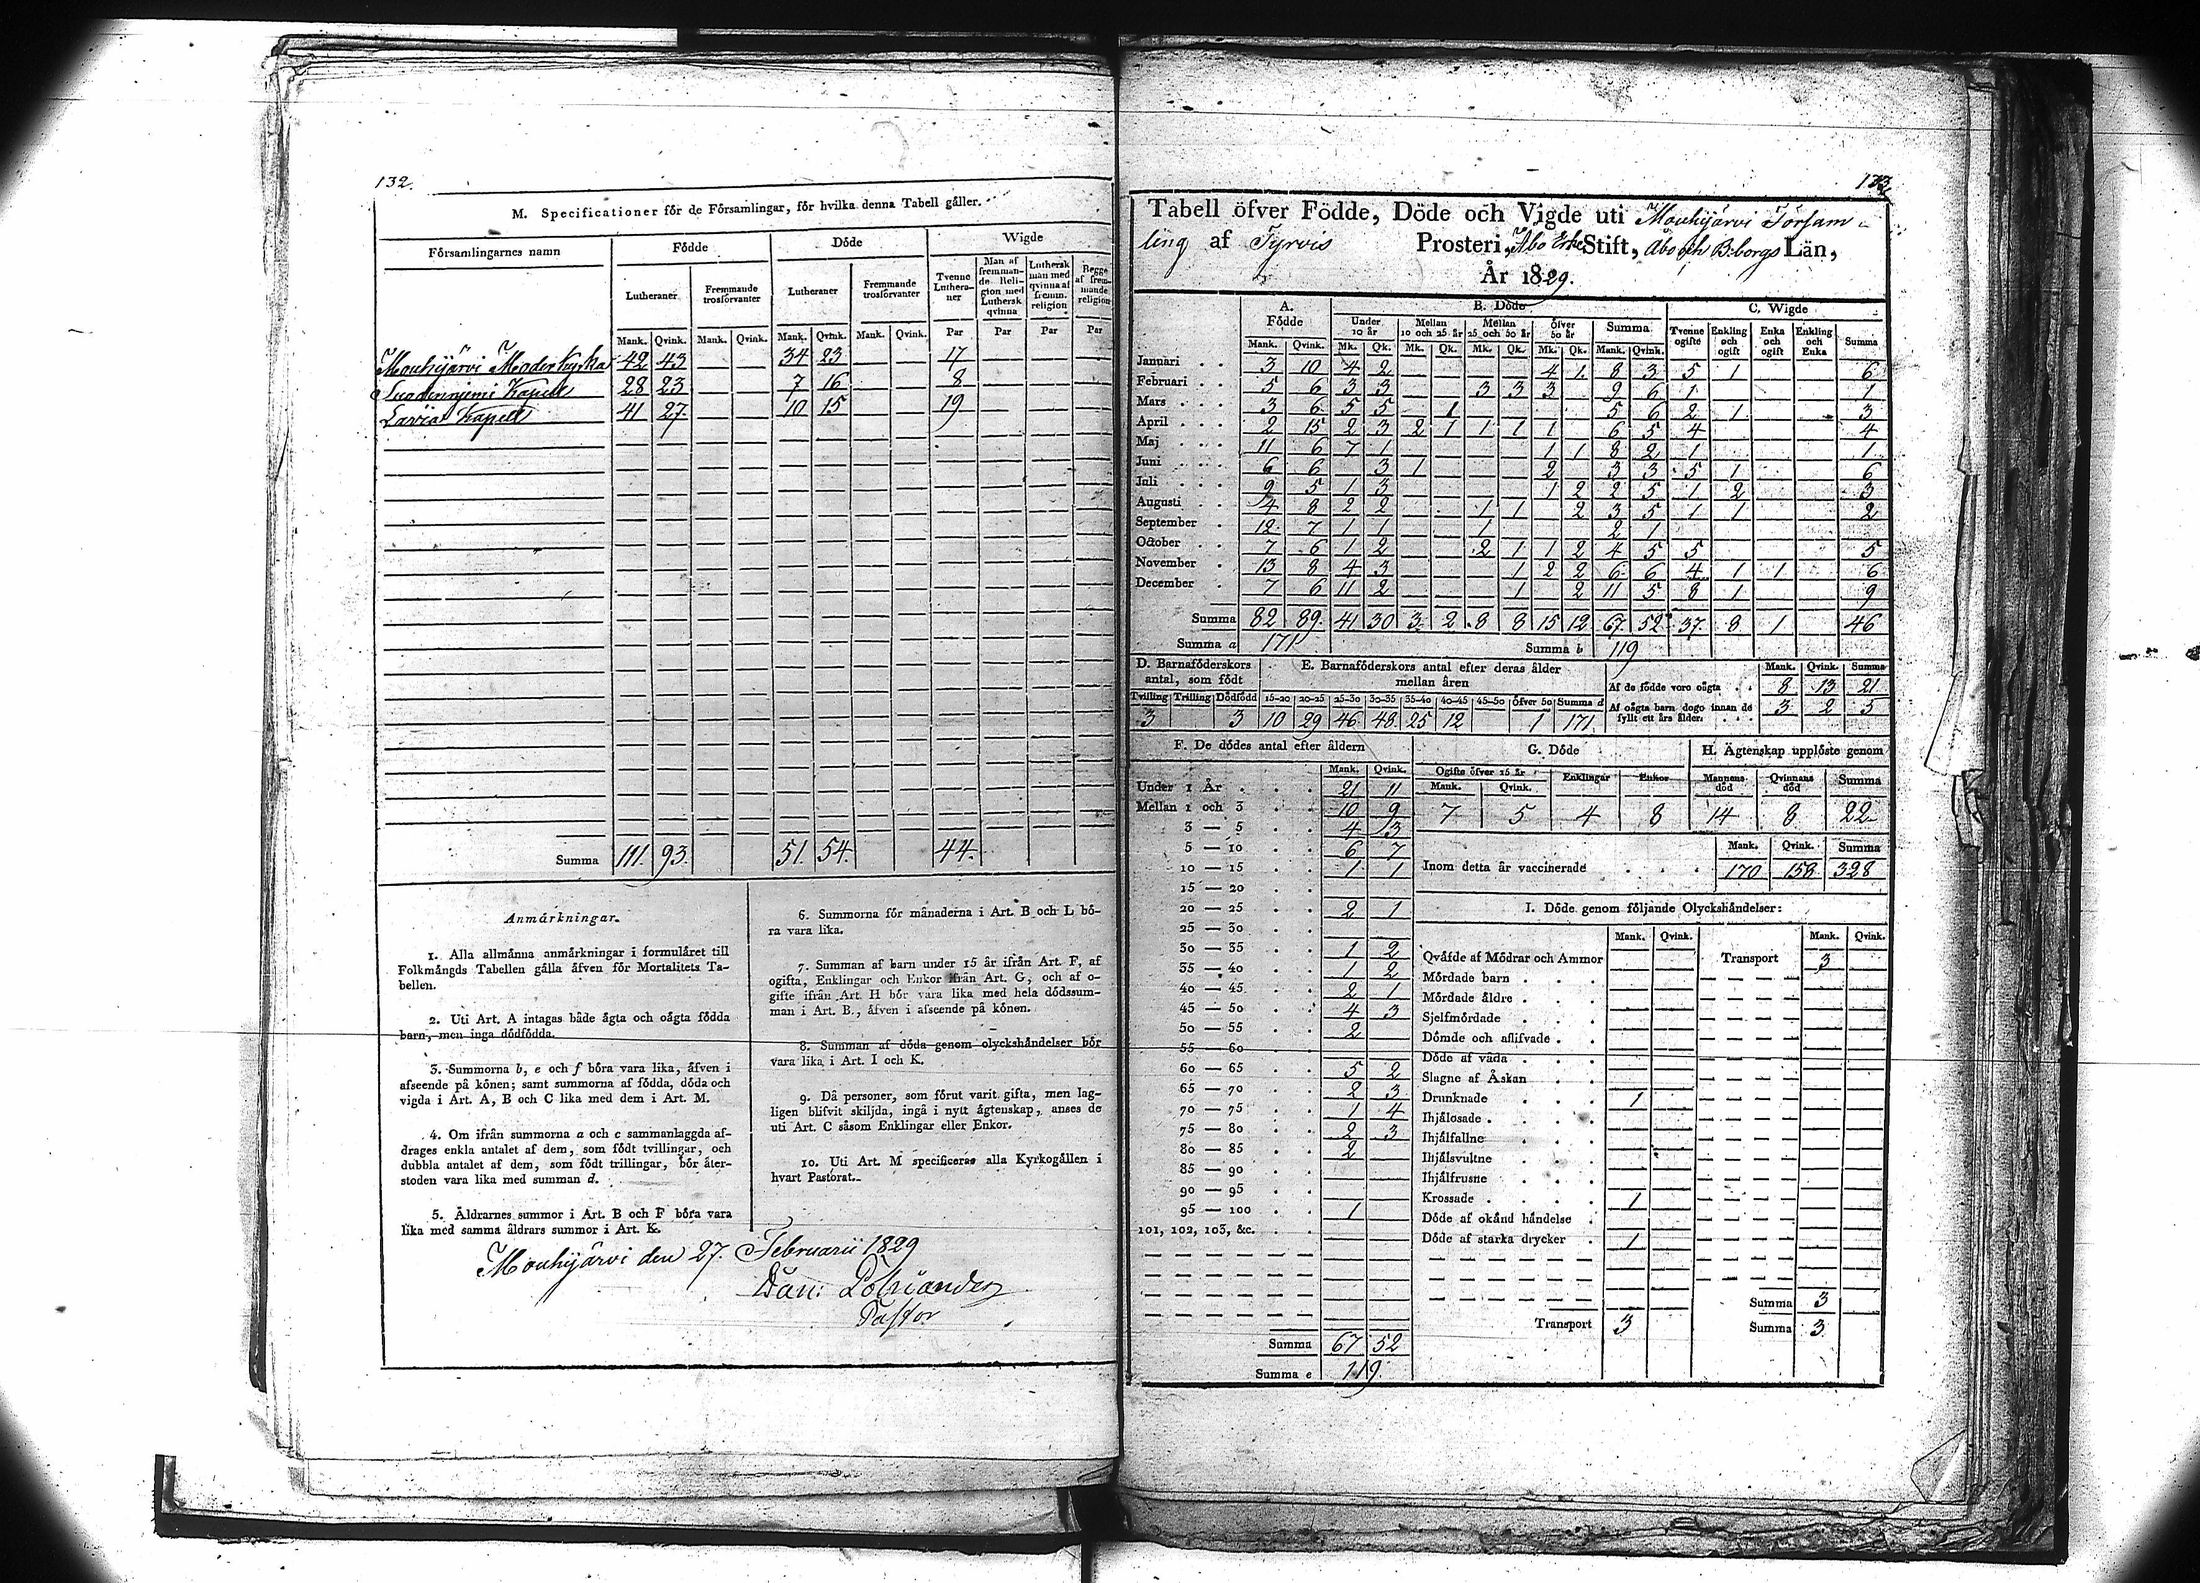 132.
M. Specificationer för de Församlingar, för hvilka denna Tabell gäller.
Församlingarnes namn | Födde | Döde | Wigde
Lutheraner | Fremmande trosförvanter | Lutheraner | Fremmande trosförvanter | Tvenne Lutheraner | Man af fremmande Religion med Luthersk qvinna | Luthersk man med qvinna af fremm. religion | Begge af fremmande religion
Mank. Qvink. Mank. Qvink. Mank. Qvink. Mank. Qvink. Par Par Par Par
Mouhijärvi Moderkyrka 42 43 34 23 17
Suodenniemi Kapell 28 23 7 16 8
Lavia Kapell 41 27 10 15 19
Summa 111. 93. 51. 54. 44.
Anmärkningar.
1. Alla allmänna anmärkningar i formuläret till
Folkmängds Tabellen gälla äfven för Mortalitets Ta-
bellen.
2. Uti Art. A intagas både ägta och oägta födda
barn, men inga dödfödda.
3. Summorna b, e och f böra vara lika, äfven i
afseende på könen; samt summorna af födda, döda och
vigda i Art. A, B och C lika med dem i Art. M.
4. Om ifrån summorna a och c sammanlaggda af-
drages enkla antalet af dem, som födt tvillingar, och
dubbla antalet af dem, som födt trillingar, bör åter-
stoden vara lika med summan d.
5. Åldrarnes summor i Art. B och F böra vara
lika med samma åldrars summor i Art. K.
6. Summorna för månaderna i Art. B och L bö-
ra vara lika.
7. Summan af barn under 15 år ifrån Art. F, af
ogifta, Enklingar och Enkor ifrån Art. G, och af o-
gifte ifrån Art. H bör vara lika med hela dödssum-
man i Art. B., äfven i afseende på könen.
8. Summan af döda genom olyckshändelser bör
vara lika i Art. I och K.
9. Då personer, som förut varit gifta, men lag-
ligen blifvit skiljda, ingå i nytt ägtenskap, anses de
uti Art. C såsom Enklingar eller Enkor.
10. Uti Art. M specificeras alla Kyrkogällen i
hvart Pastorat.
Mouhijärvi den 27. Februarii 1829
Pastor
133
Tabell öfver Födde, Döde och Vigde uti Mouhijärvi Försam-
ling af Tyrvis Prosteri, Åbo Erke Stift, Åbo och B:borgs Län,
År 1829.
A. Födde | B. Döde | C. Wigde
Under 10 år | Mellan 10 och 25 år | Mellan 25 och 50 år | öfver 50 år | Summa | Tvenne ogifte | Enkling och ogift | Enka och ogift | Enkling och Enka | Summa
Mank. Qvink. Mk. Qk. Mk. Qk. Mk. Qk. Mk. Qk. Mank. Qvink.
Januari 3 10 4 2 4 1. 8 3 5 1 6
Februari 5 6 3 3 3 3 3 9 6 1 1
Mars 3 6 5 5 1 5 6 2 1 3
April 2 15 2 3 2 1 1 1 1 6 5 4 4
Maj 11 6 7 1 1 1 8 2 1 1
Juni 6 6 3 1 2 3 3 5 1 6
Juli 9 5 1 3 1 2 2 5 1 2 3
Augusti 4 8 2 2 1 1 2 3 5 1 1 2
September 12 7 1 1 1 2 1
October 7 6 1 2 2 1 1 2 4 5 5 5
November 13 8 4 3 1 2 2 6 6 4 1 1 6
December 7 6 11 2 1 2 11 5 8 1 9
Summa 82 89. 41 30 3 2 8 8 15 12 67 52 37. 8 1 46
Summa a 171 Summa b 119
D. Barnaföderskors antal, som födt | E. Barnaföderskors antal efter deras ålder mellan åren | Mank. Qvink. Summa
Tvilling Trilling Dödfödd 15-20 20-25 25-30 30-35 35-40 40-45 45-50 öfver 50 Summa d
3 3 10 29 46 48 25 12 1 171.
Af de födde voro oägta 8 13 21
Af oägta barn dogo innan de fyllt ett års ålder. 3 2 5
F. De dödes antal efter åldern
Mank. Qvink.
Under 1 År 21 11
Mellan 1 och 3 10 9
3 — 5 4 3
5 — 10 6 7
10 — 15 1 1
15 — 20
20 — 25 2 1
25 — 30
30 — 35 1 2
35 — 40 1 2
40 — 45 2 1
45 — 50 4 3
50 — 55 2
55 — 60
60 — 65 5 2
65 — 70 2 3
70 — 75 1 4
75 — 80 2 3
80 — 85 2
85 — 90
90 — 95
95 — 100 1
101, 102, 103, &c.
Summa 67 52
Summa e 119.
G. Döde
Ogifte öfver 15 år | Enklingar | Enkor
Mank. Qvink.
7 5 4 8
H. Ägtenskap upplöste genom
Mannens död | Qvinnans död | Summa
14 8 22
Mank. Qvink. Summa
Inom detta år vaccinerade 170 158 328
I. Döde genom följande Olyckshändelser:
Mank. Qvink. Mank. Qvink.
Qväfde af Mödrar och Ammor Transport 3
Mördade barn
Mördade äldre
Sjelfmördade
Dömde och aflifvade
Döde af våda
Slagne af Åskan
Drunknade 1
Ihjälosade
Ihjälfallne
Ihjälsvultne
Ihjälfrusne
Krossade 1
Döde af okänd händelse
Döde af starka drycker 1
Summa 3
Transport 3 Summa 3